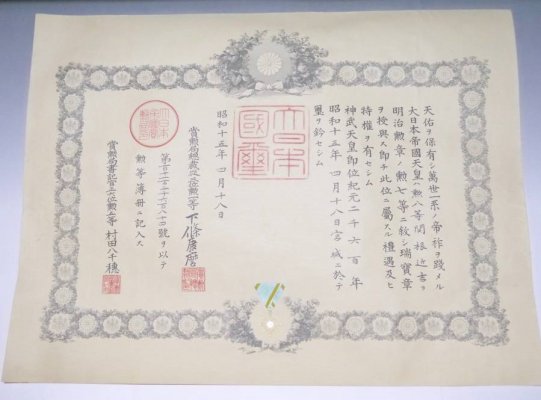 天佑ヲ保有シ萬世一系ノ帝祚ヲ踐メル
大日本帝國天皇ハ勲八等関根近吉ヲ
明治勲章ノ勲七等ニ敍シ瑞寶章
ヲ授與ス即チ此位ニ屬スル禮遇及ヒ
特權ヲ有セシム
神武天皇即位紀元二千六百年
昭和十五年四月十八日宮城ニ於テ
璽ヲ鈐セシム
大日本國璽
昭和十五年四月十八日
賞勲局総裁 下條康麿
號ヲ以テ
勲等簿冊ニ記入ス
賞勲局書記官 村田八千穂